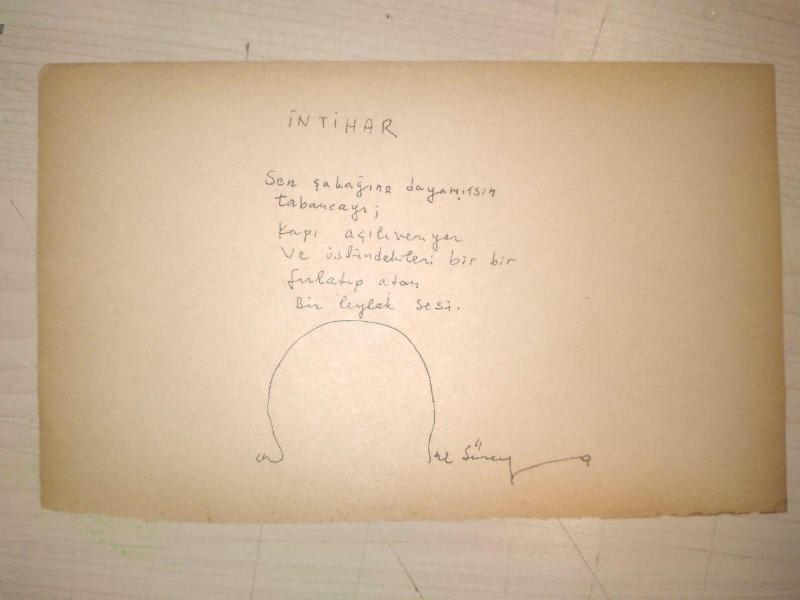 İNTİHAR
Sen şakağına dayamışsın
tabancayı;
Kapı açılıveriyor
Ve üstündekileri bir bir
fırlatıp atan
Bir leylak sesi.
Süreya